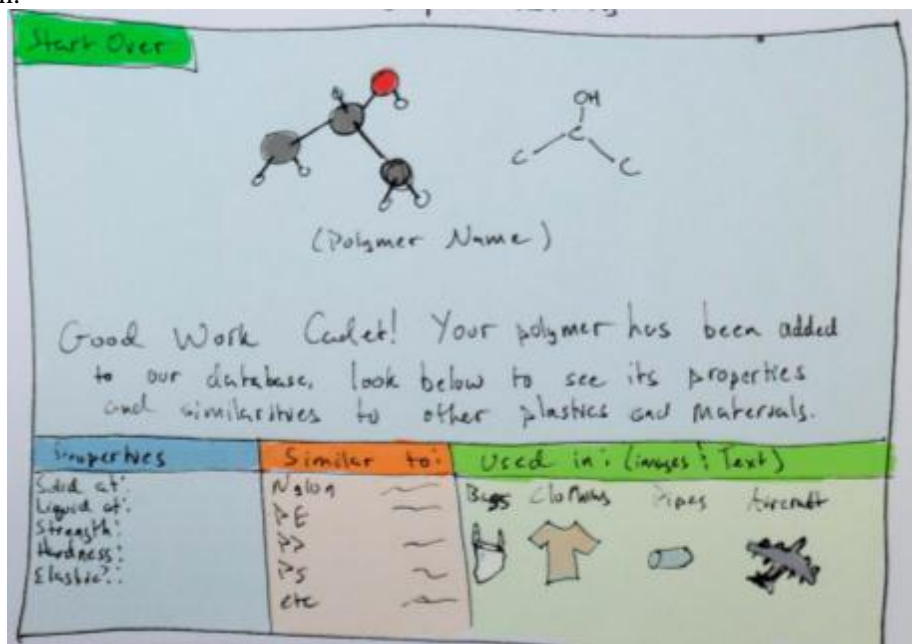 n.
Start Over
H
OH
C
C
C
(Polymer Name)
Good Work Cadet! Your polymer has been added
to our database, look below to see its properties
and similarities to other plastics and materials.
Properties
Solid at:
Liquid at:
Strength:
Hardness:
Elastic?:
Similar to:
Nylon
PE
PP
PS
etc
Used in: (images & Text)
Bags Clothing Pipes Aircraft